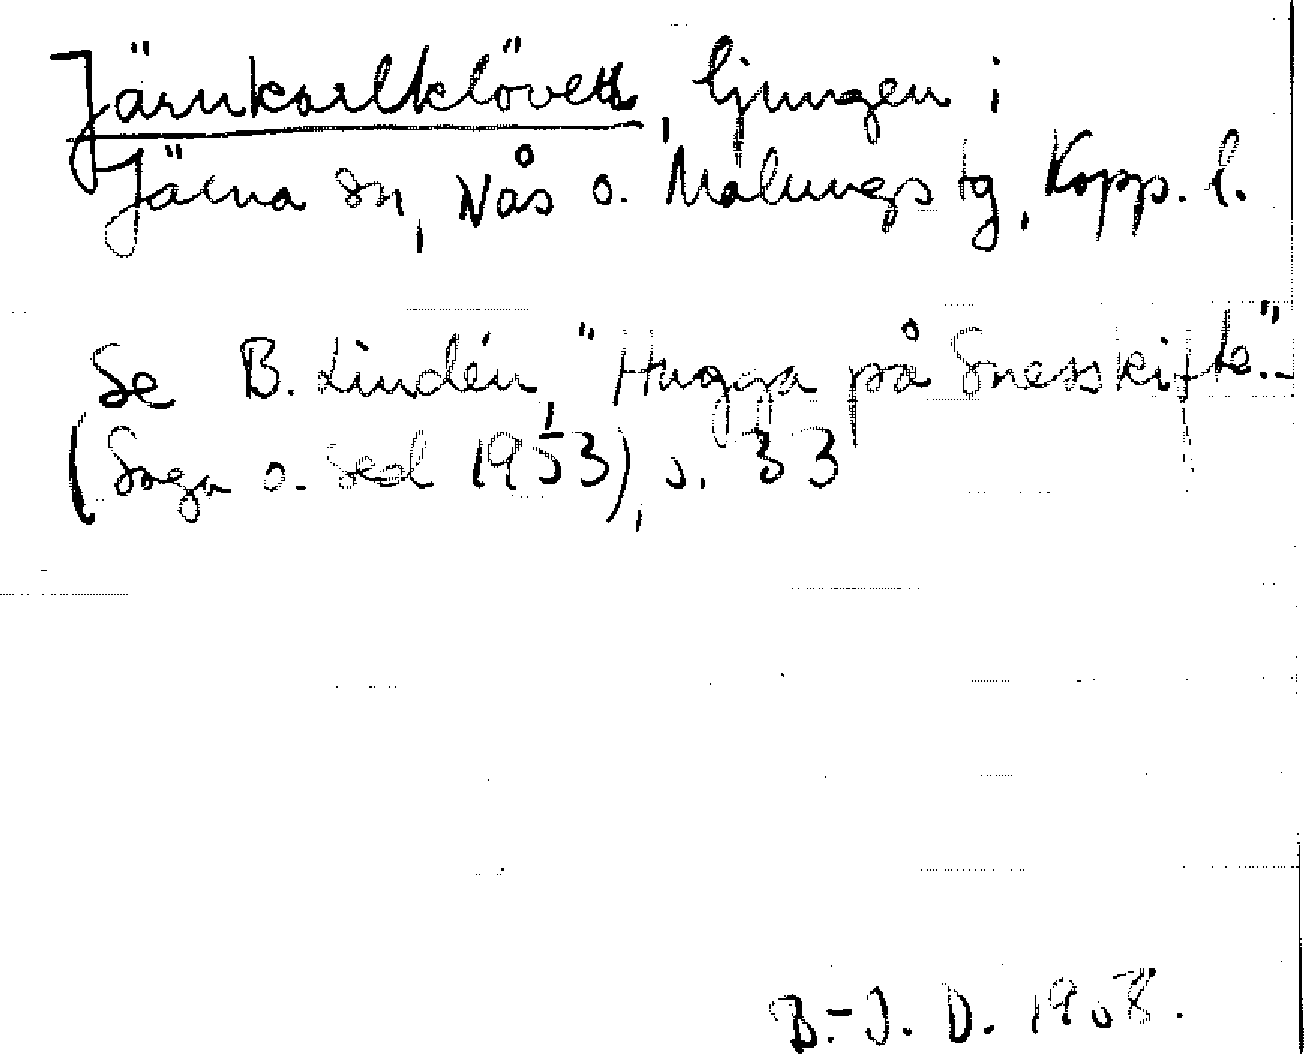 Järnkarlklövett, ljungen i
Järna sn, Nås o. Malungs tg, Kopp. l.
Se B. Lindén, "Hugga på Snesskifte"
(Saga o. sed 1953), s. 33
B.-J. D. 1958.